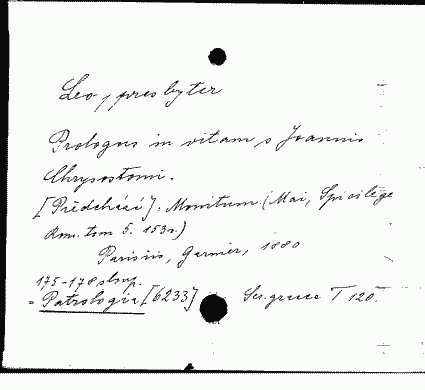 Leo, presbyter
Prologus in vitam s Joannis
Chrysostomi.
[Předchází]: Monitum (Mai, Spicilege
Rom. tom 5. 153s.)
Parisiis, Garnier, 1880
175-178 sloup.
= Patrologia [6233] Ser. graeca T 120.